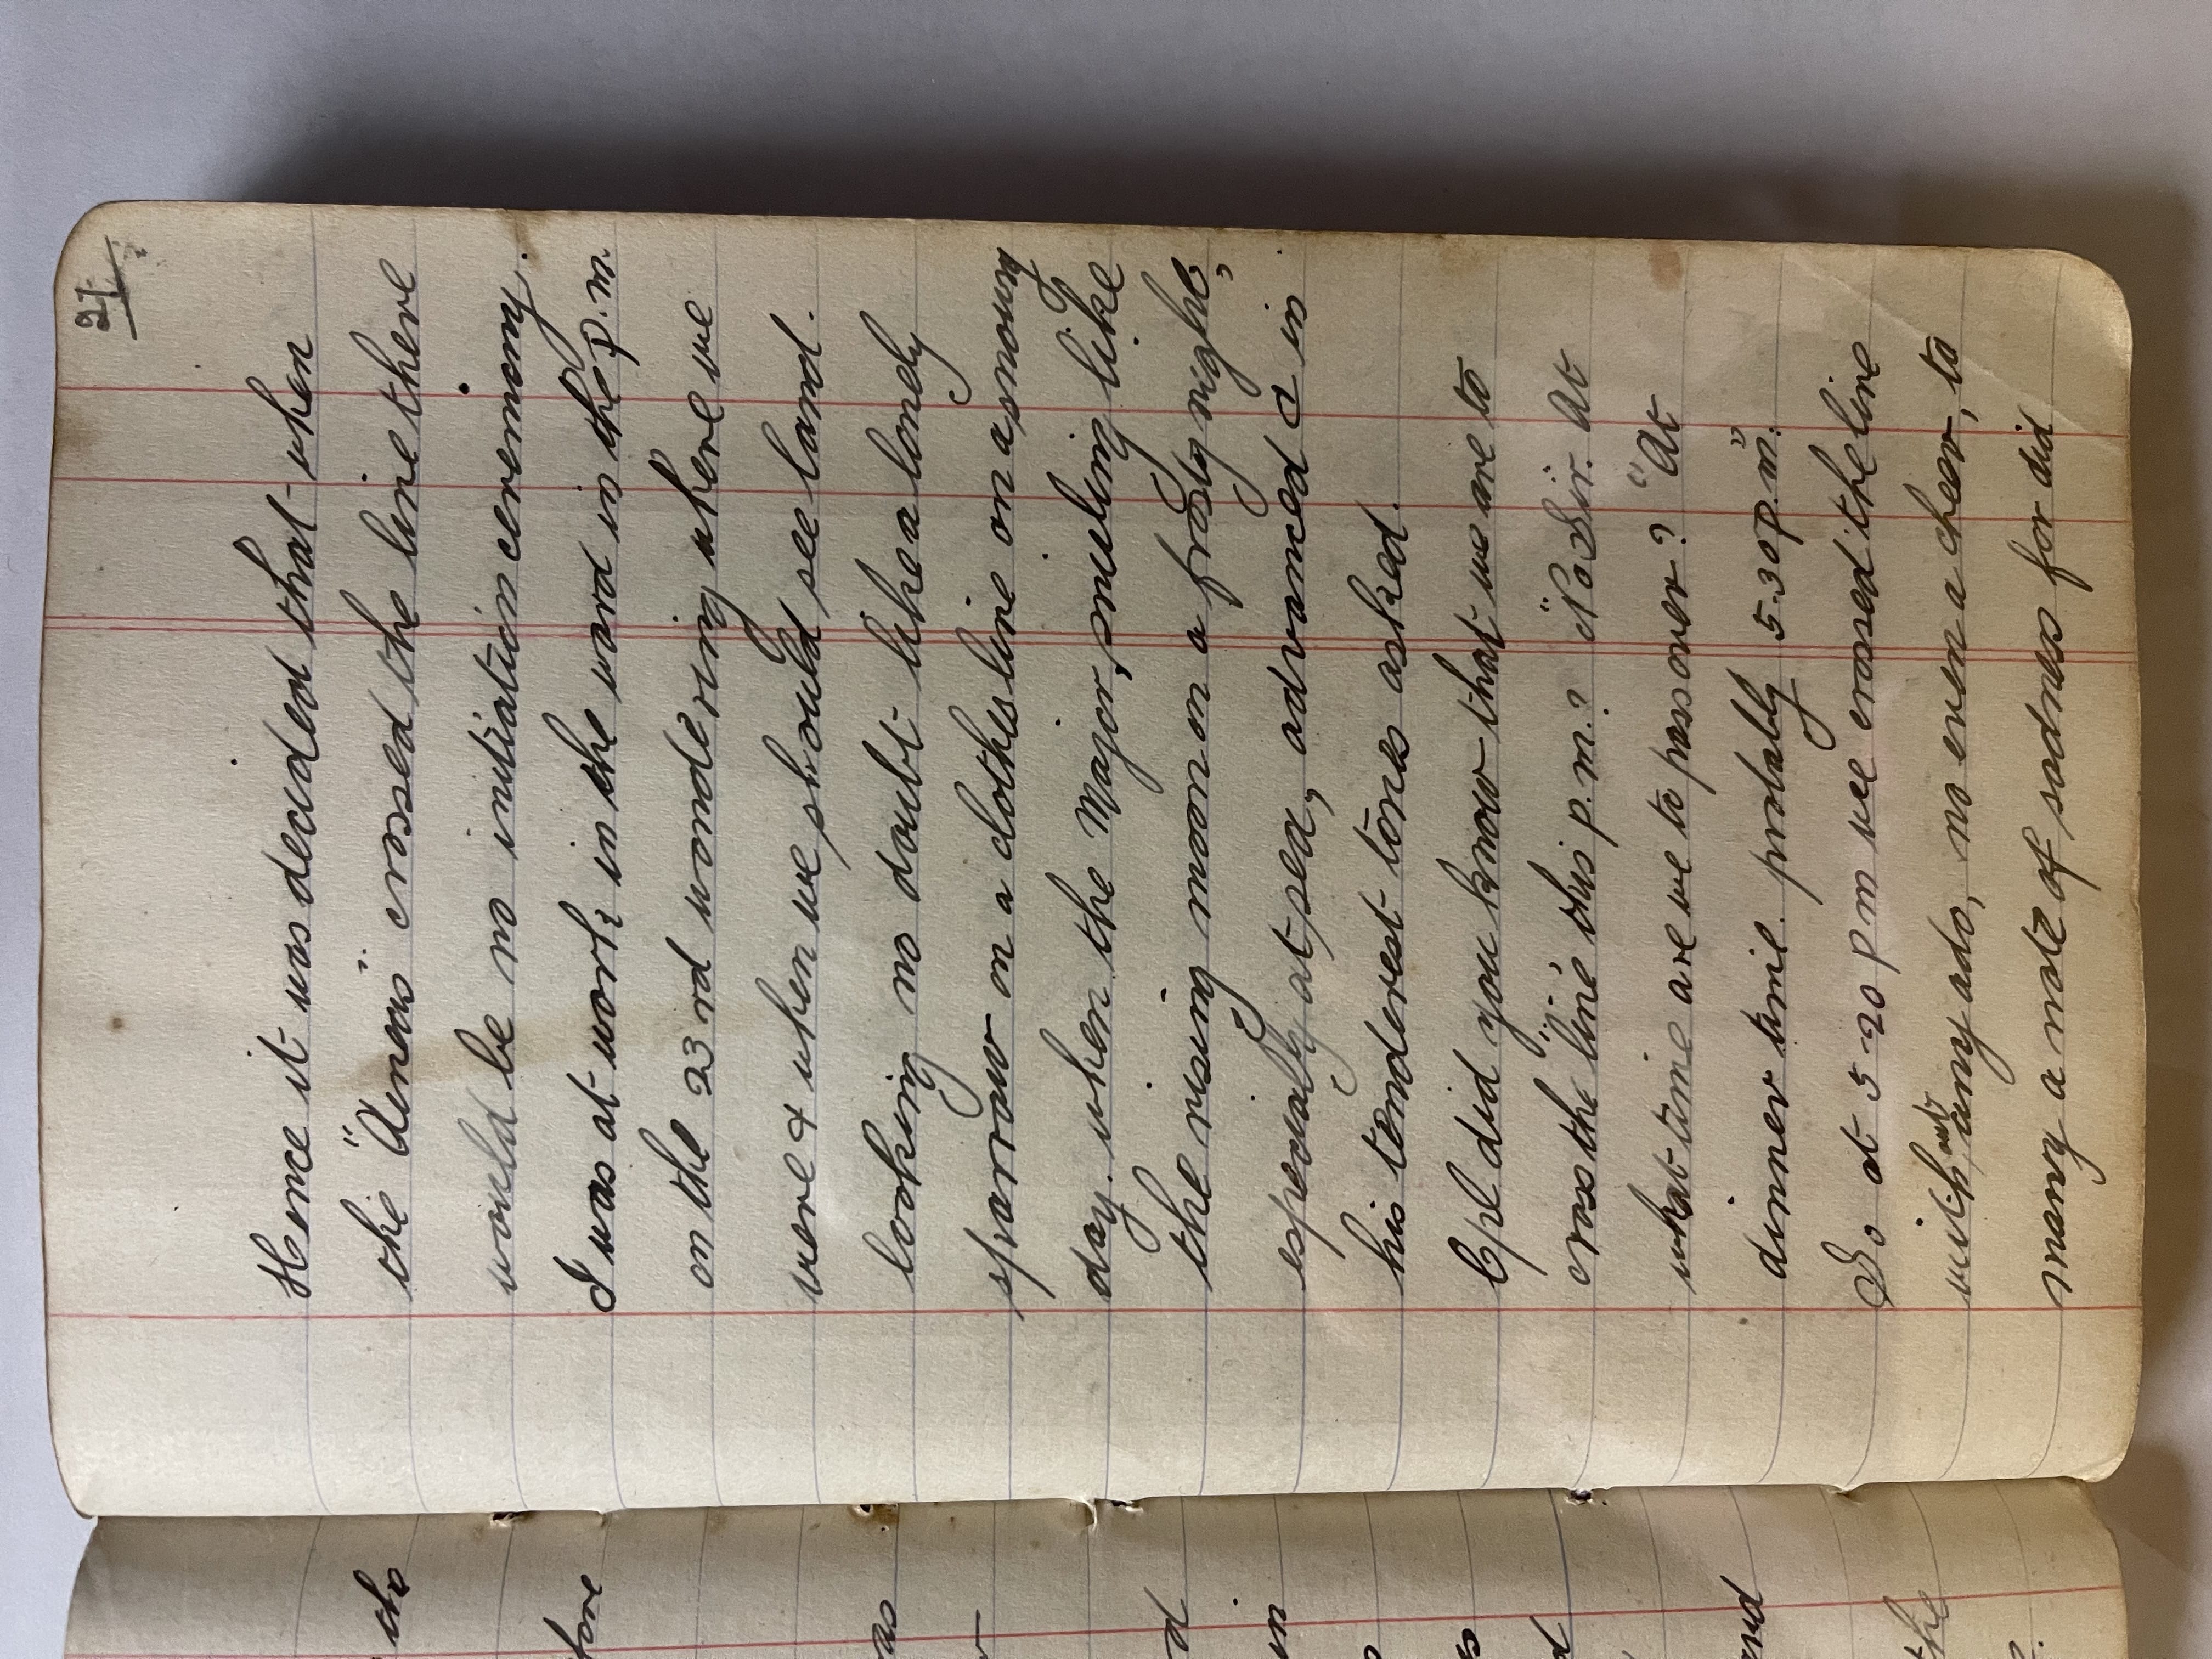 21
Hence it was decided that when
the "Aeneas" crossed the line there
would be no initiation ceremony.
I was at work in the ward in the p.m.
on the 23rd wondering where we
were & when we should see land.
looking no doubt like a lonely
sparrow on a clothesline on a snowy
day. when the Major, smiling like
the rising moon on a frosty night,
especially at sea, advanced & in
his tenderest tones asked.
Cpl did you know that we are to
cross the "line" this p.m.? "No Sir. At
what time are we to pass over? "At
dinner time probably 5.30 p.m."
So at 5-20 pm we crossed the line
with out any ado, no even a cheer, to
many a note of sadness for did
the
fore
as
d
in
s
d
and
the